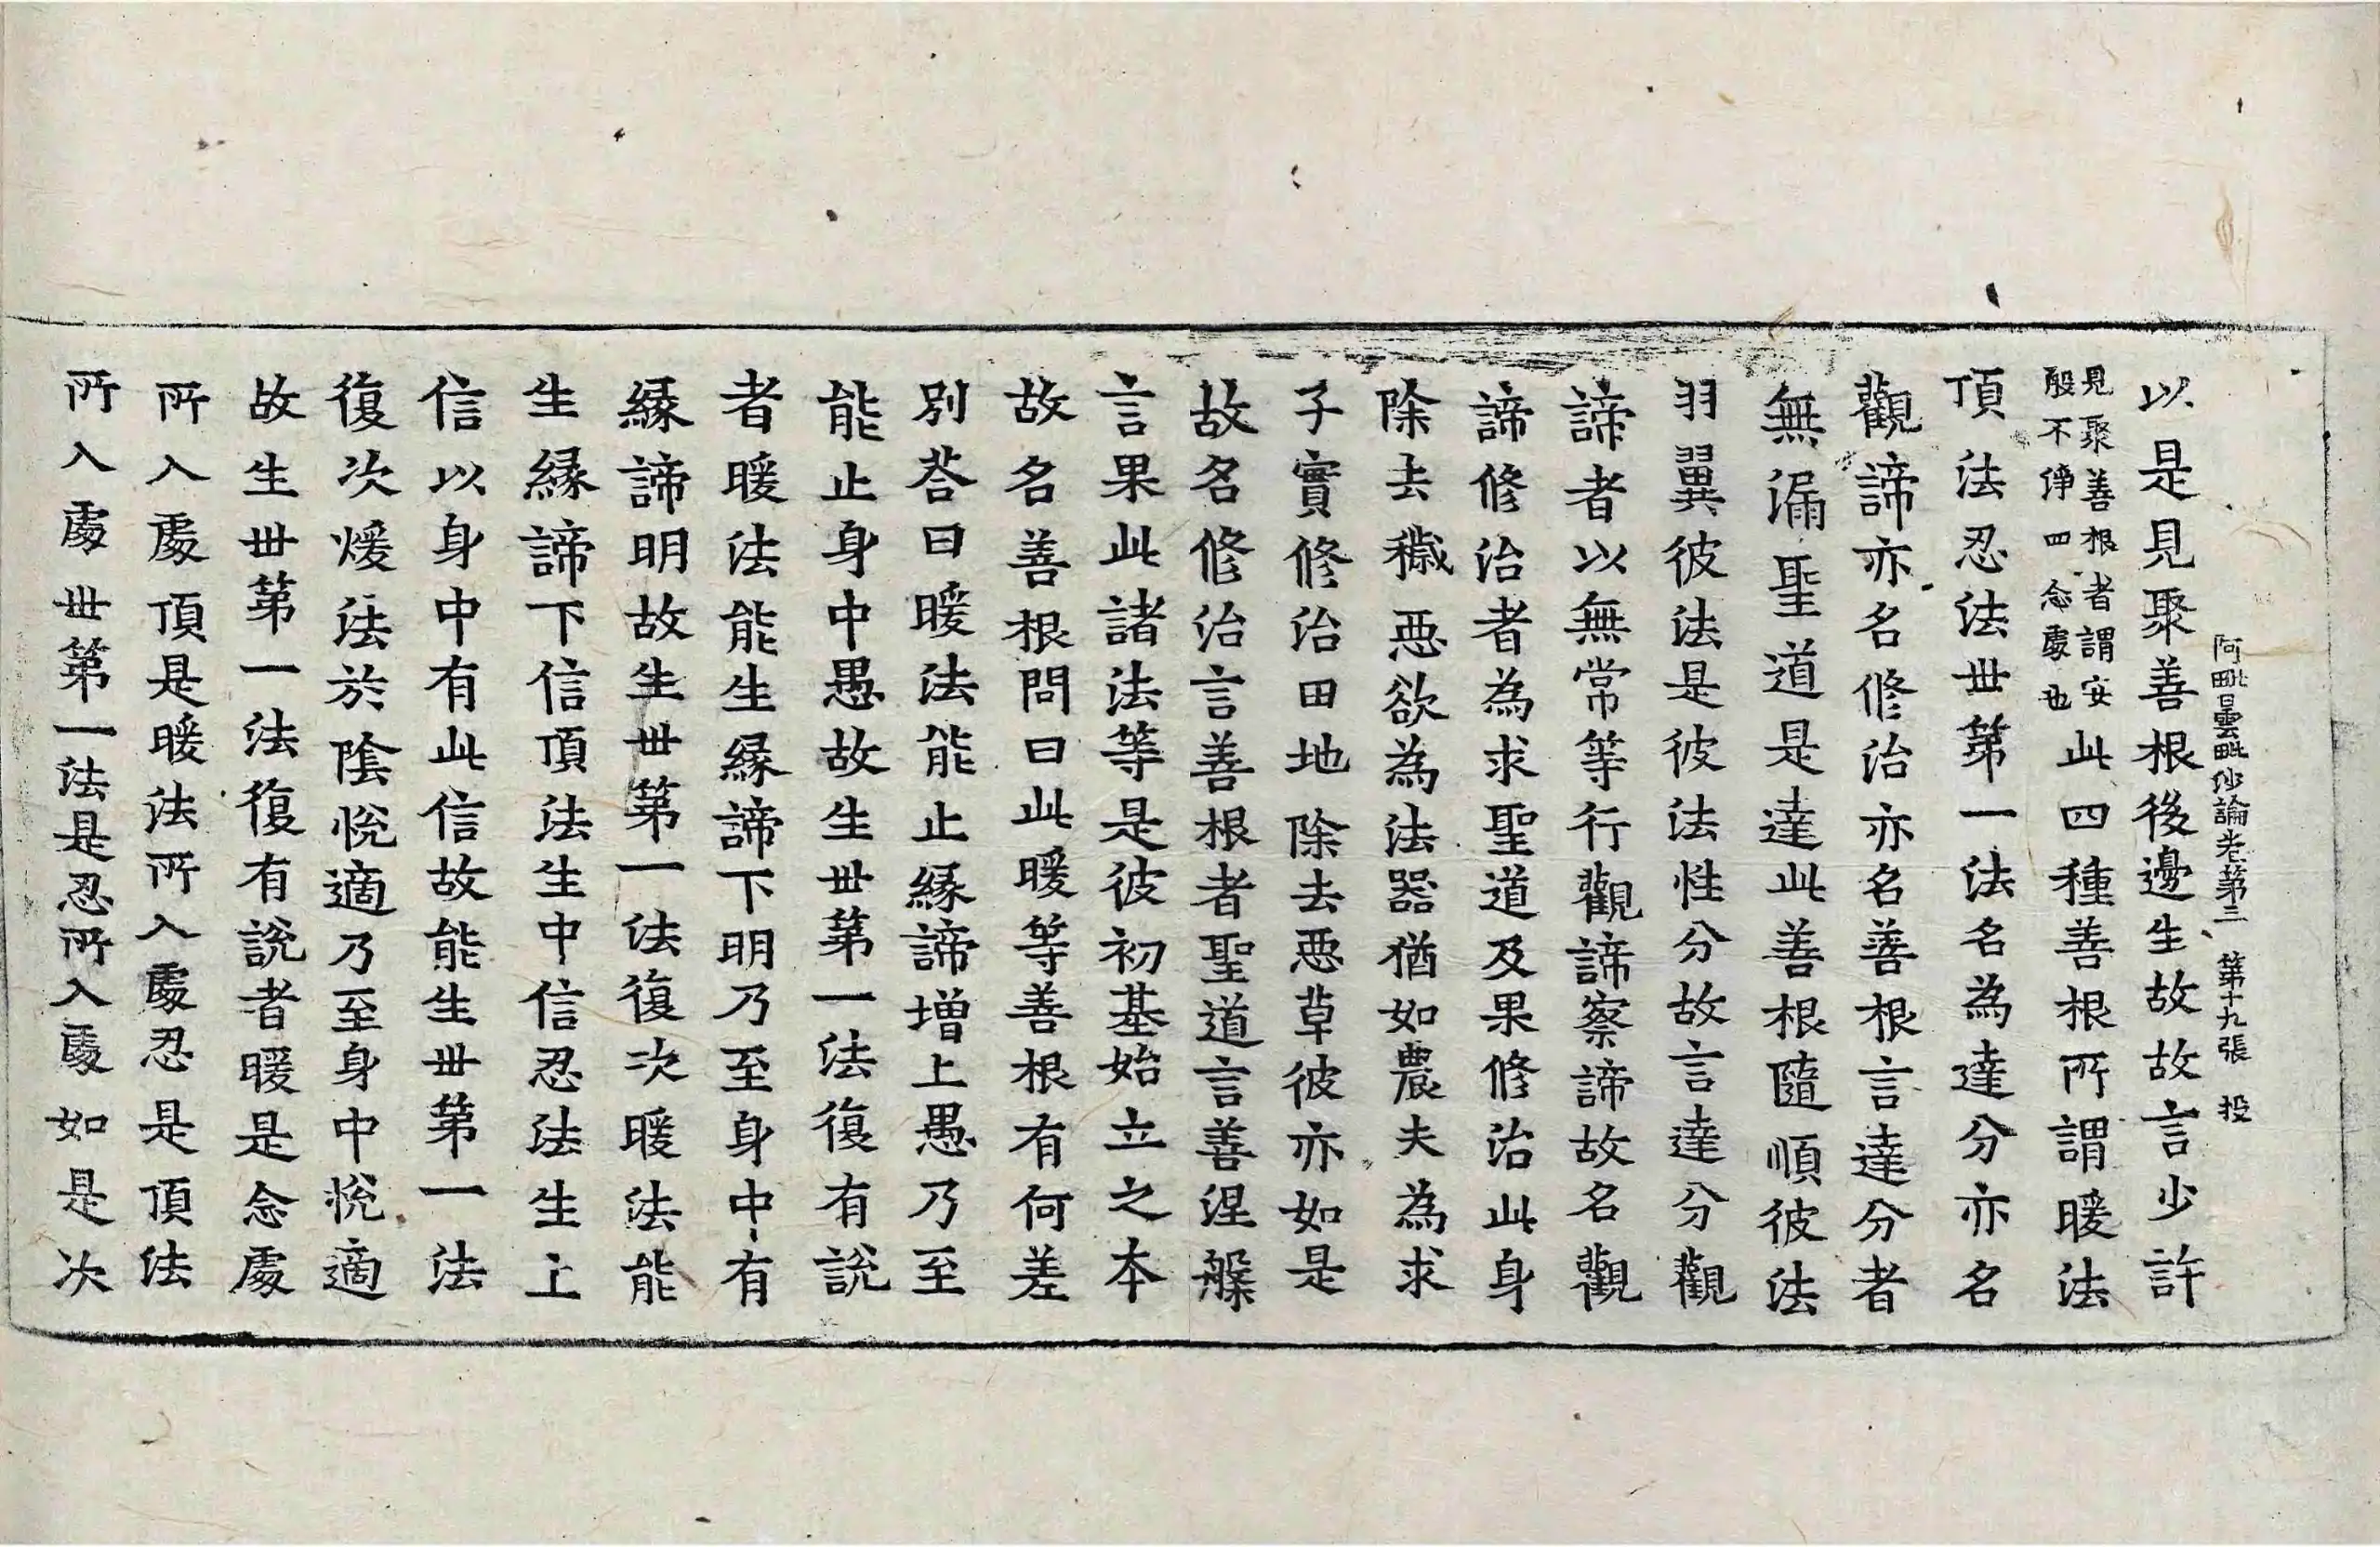 阿毗曇毗沙論卷第三　第十九張　投
以是見聚善根後邊生故故言少許
見聚善根者謂安
般不淨四念處也
此四種善根所謂暖法
頂法忍法世第一法名為達分亦名
觀諦亦名修治亦名善根言達分者
無漏聖道是達此善根隨順彼法
羽翼彼法是彼法性分故言達分觀
諦者以無常等行觀諦察諦故名觀
諦修治者為求聖道及果修治此身
除去穢惡欲為法器猶如農夫為求
子實修治田地除去惡草彼亦如是
故名修治言善根者聖道言善涅槃
言果此諸法等是彼初基始立之本
故名善根問曰此暖等善根有何差
別荅曰暖法能止緣諦增上愚乃至
能止身中愚故生世第一法復有說
者暖法能生緣諦下明乃至身中有
緣諦明故生世第一法復次暖法能
生緣諦下信頂法生中信忍法生上
信以身中有此信故能生世第一法
復次煖法於陰悅適乃至身中悅適
故生世第一法復有說者暖是念處
所入處頂是暖法所入處忍是頂法
所入處世第一法是忍所入處如是次